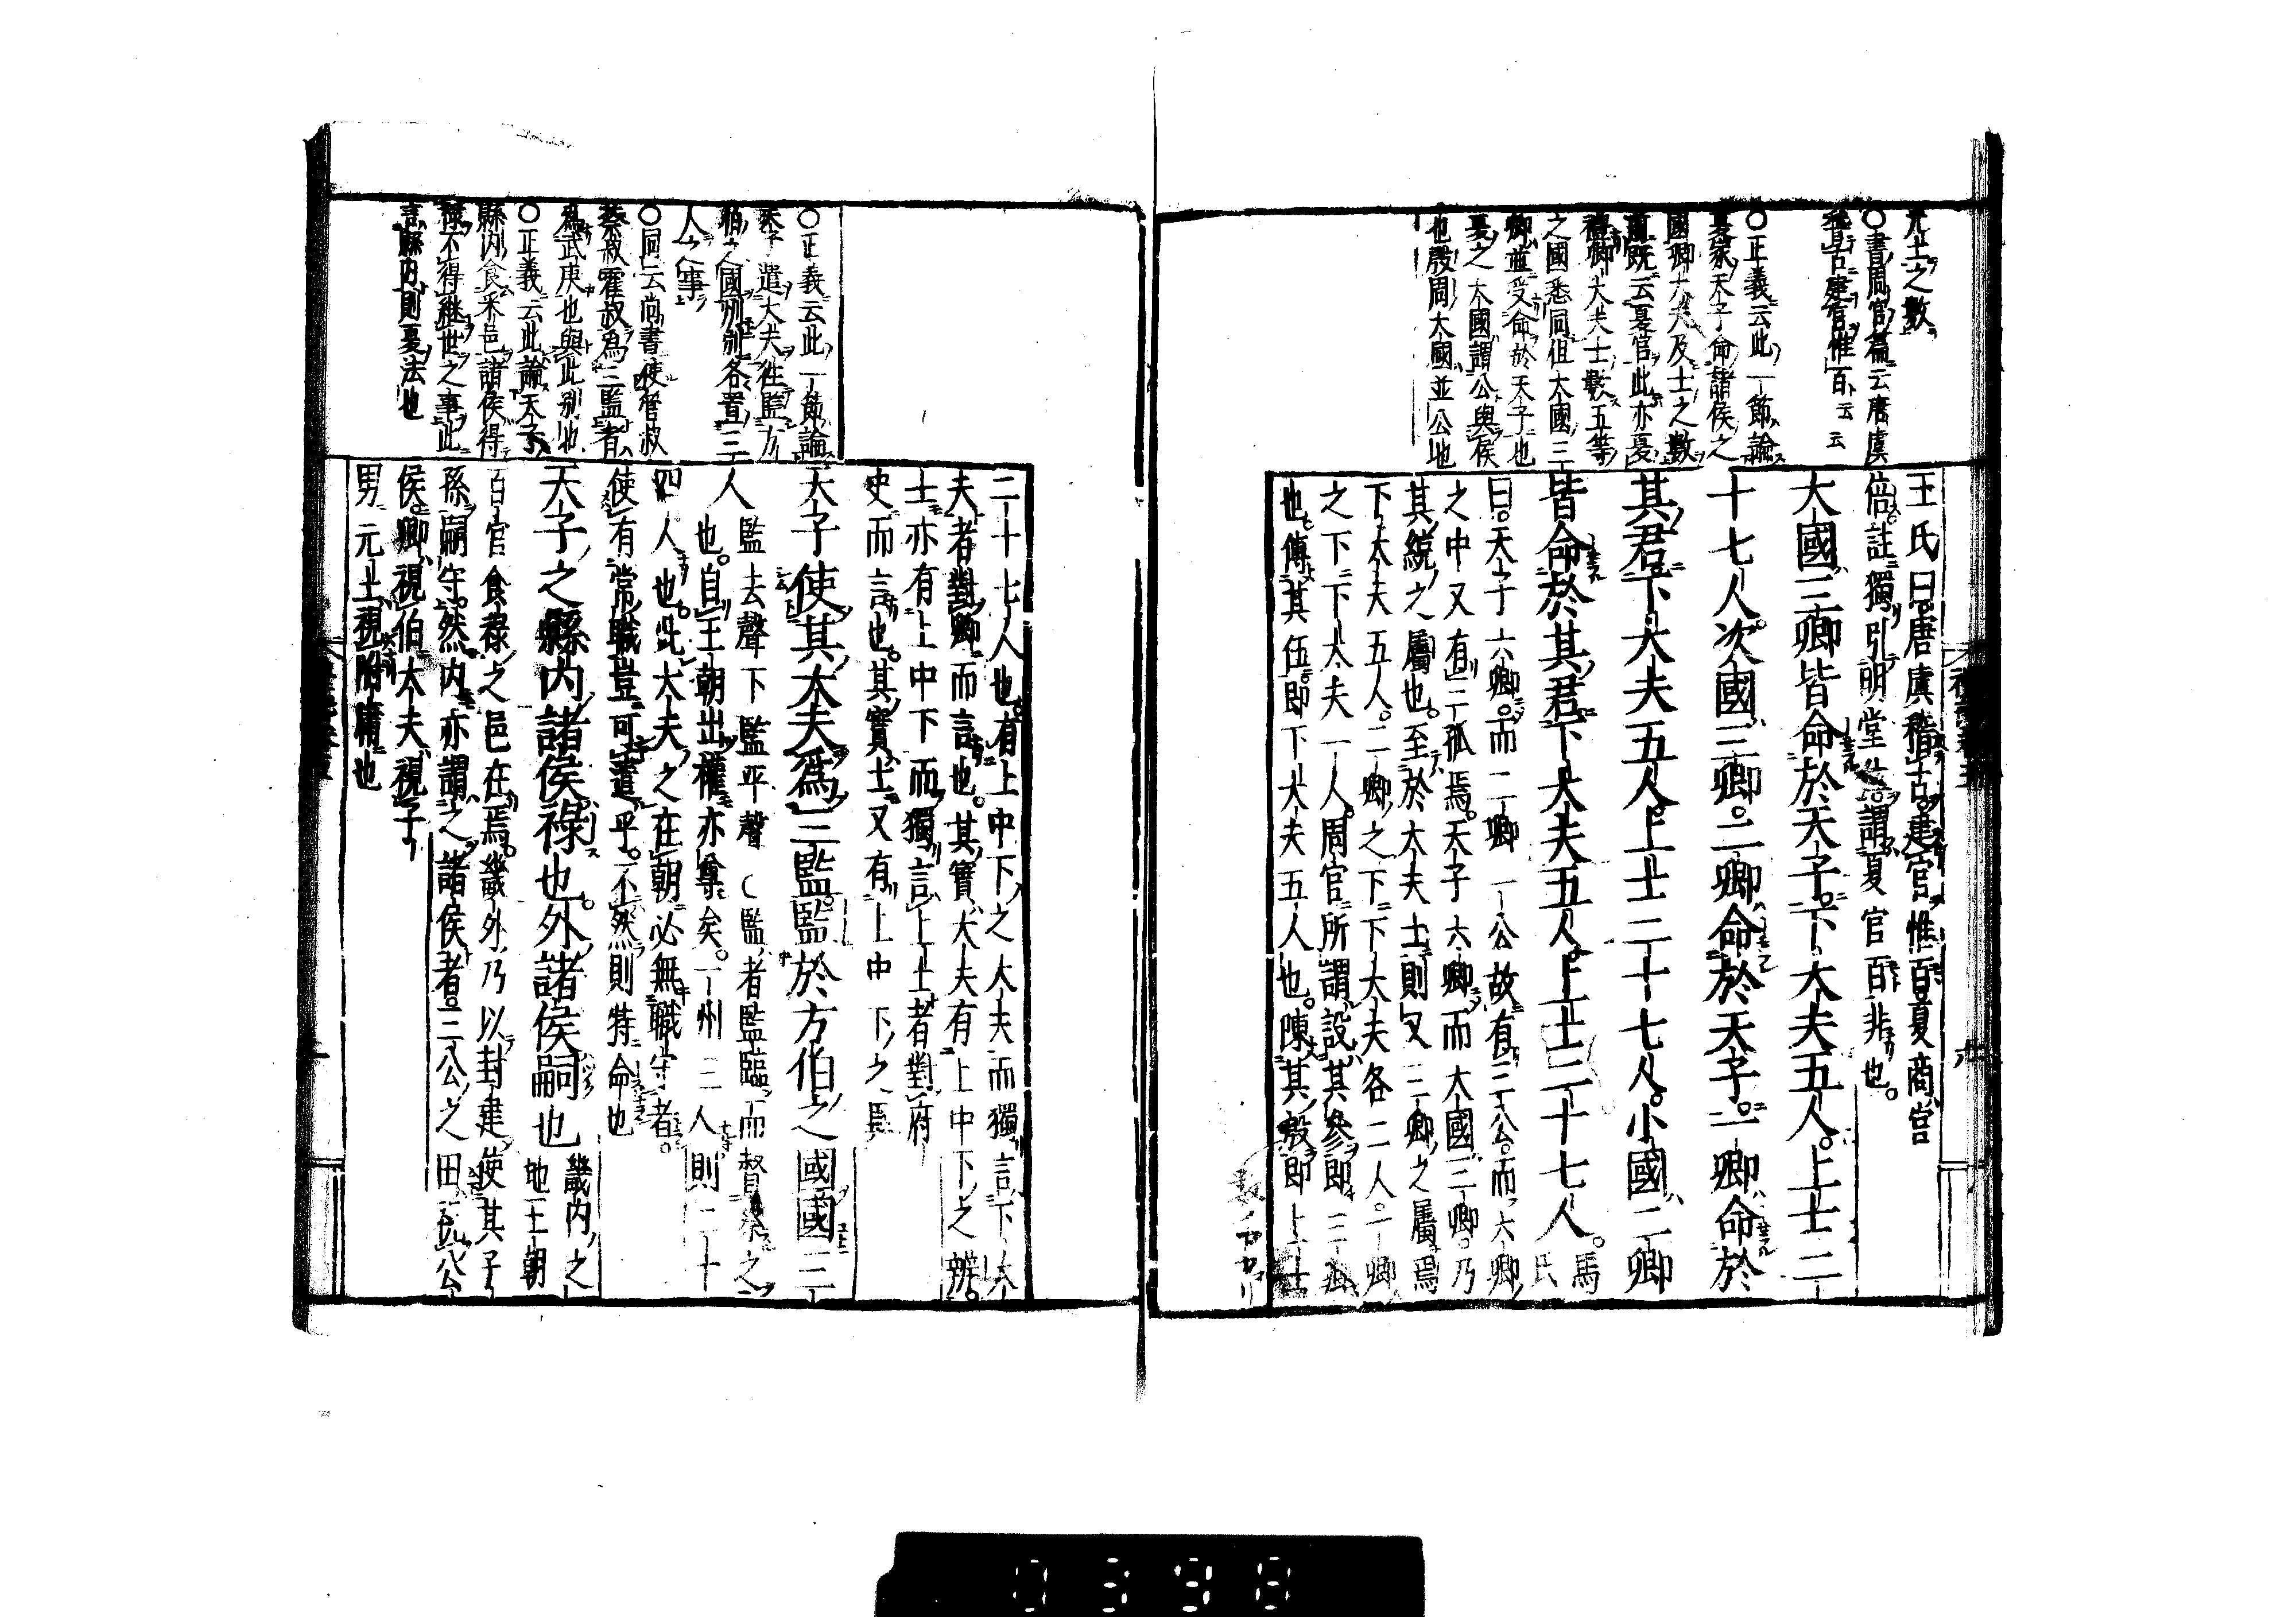 元士之數
○書周官篇云唐虞
稽古建官惟百云云
○正義云此一節論
夏家天子命諸侯之
國卿大夫及士之數
前既云夏官此亦夏
禮卿大夫士數五等
之國悉同但大國三
卿並受命於天子也
夏之大國謂公與侯
也殷周大國並公地
王氏曰唐虞稽古建官惟百夏商官
倍註獨引明堂位謂夏官百非也
大國三卿皆命於天子下大夫五人上士二
十七人次國三卿二卿命於天子一卿命於
其君下大夫五人上士二十七人小國二卿
皆命於其君下大夫五人上士二十七人 馬氏
曰天子六卿而二卿一公故有三公而六卿
之中又有三孤焉天子六卿而大國三卿乃
其統之屬也至於大夫士則又三卿之屬焉
下大夫五人二卿之下下大夫各二人一卿
之下下大夫一人周官所謂設其參即三卿
也傅其伍即下大夫五人也陳其殷即上士
二十七人也有上中下之大夫而獨言下大
夫者對卿而言也其實大夫有上中下之辨
士亦有上中下而獨言上士者對府
史而言也其實士又有上中下之異
○正義云此一節論
天子遣大夫往監方
伯之國別各置三
人之事
○同云尚書使管叔
蔡叔霍叔為三監者
為武庚也與此別也
○正義云此論天子
縣內食采邑諸侯得
祿不得繼世之事此
言縣內則夏法也
天子使其大夫爲三監監於方伯之國國三
人 監去聲下監平聲 監者監臨而督察之
也自王朝出權亦尊矣一州三人則二十
四人也此大夫之在朝必無職守者
使有常職豈可遣乎不然則特命也
天子之縣內諸侯祿也外諸侯嗣也 畿內之地王朝
百官食祿之邑在焉畿外乃以封建使其子
孫嗣守然內亦謂之諸侯者三公之田視公
侯卿視伯大夫視子
男元士視附庸也
0398